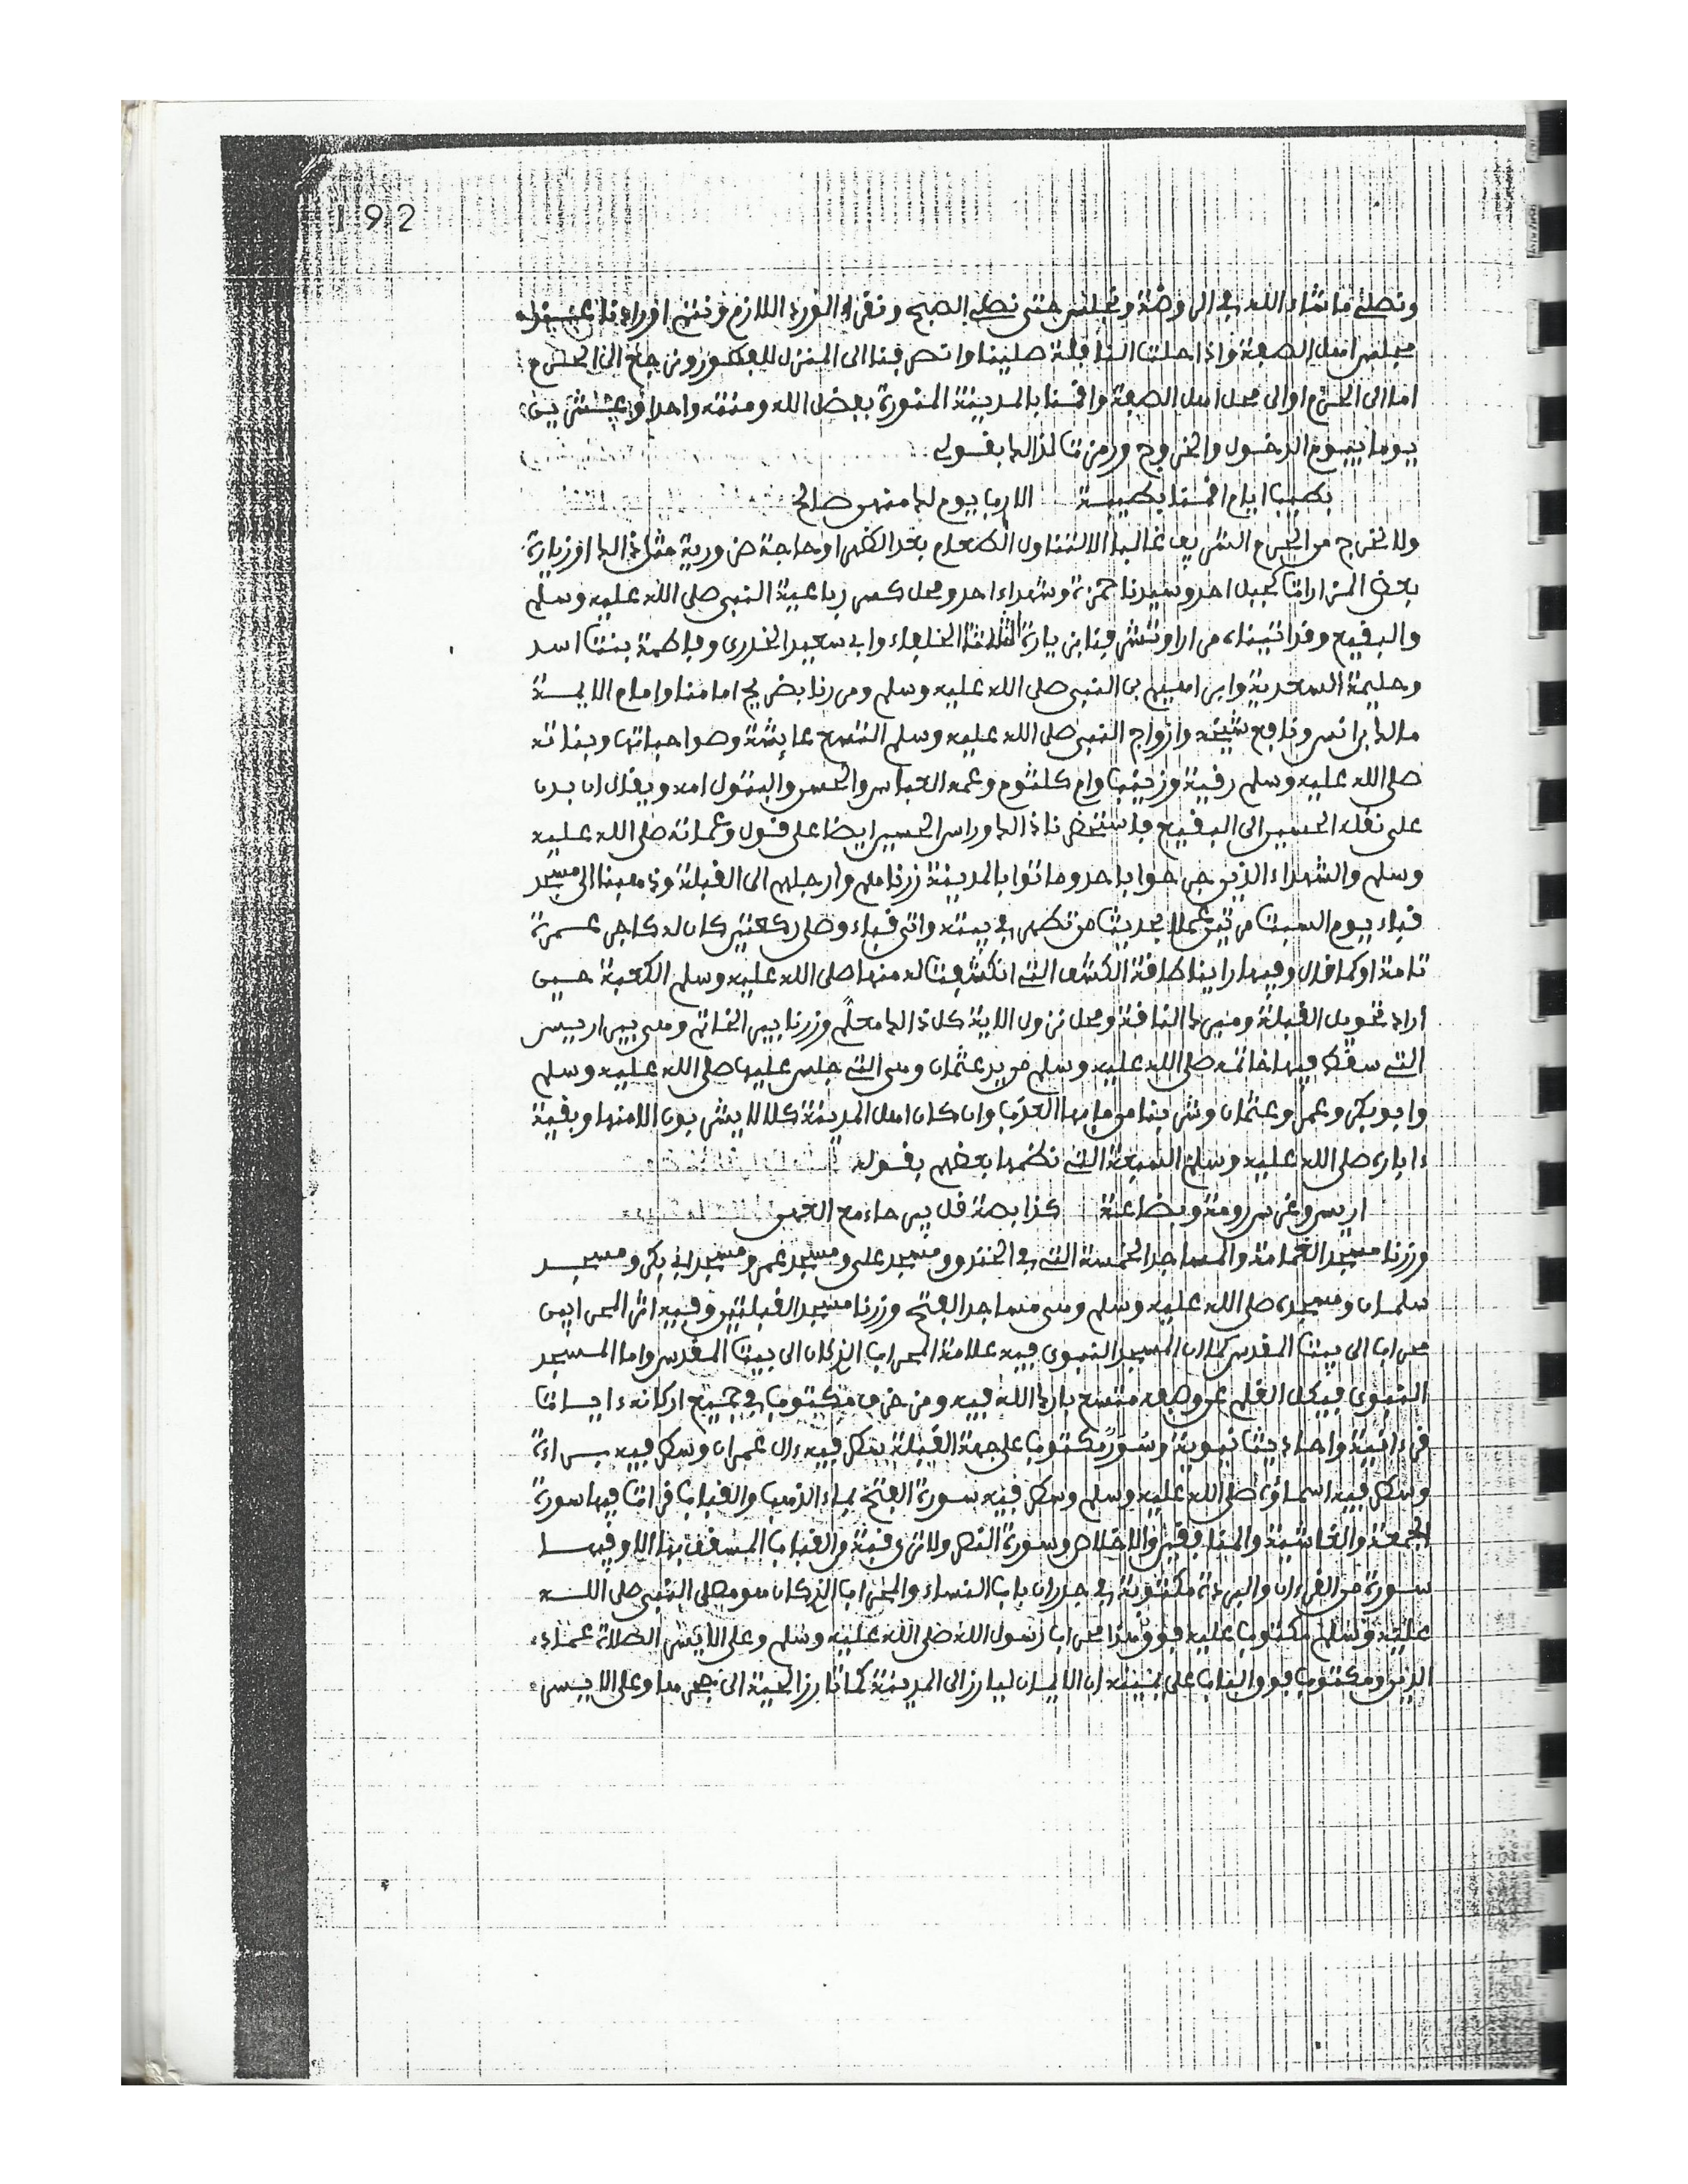 192
ونصلي ما شاء الله في الروضة ونجلس حتى نصلي الصبح ونقرا الورد اللازم ونتم اورادنا
مجلس اهل الصفة واذا حلت النافلة صلينا وانصرفنا الى المنزل للفطور ونرجع الى الحرم
اما الى الحرم او الى محل اهل الصفة واقمنا بالمدينة المنورة بفضل الله ومنته واحدا وعشرين
يوما بيوم الدخول والخروج ورمزت لذالك بقولي
بطيب ايام اقمنا بطيبة الارب يوم لك منهن صالح
ولا نخرج من الحرم الشريف غالبا الا لتناول الطعام بعد الظهر او حاجة ضرورية مثل ذالك او زيارة
بعض المزارات كجبل احد وسيدنا حمزة وشهداء احد ومحل كسر رباعية النبي صلى الله عليه وسلم
والبقيع وقد اتيناه مرارا وتشرفنا بزيارة الثلاثة الخلفاء وابي سعيد الخدري وفاطمة بنت اسد
وحليمة السعدية وابراهيم بن النبي صلى الله عليه وسلم ومررنا بضريح امامنا وامام الايمـة
مالك بن انس ونافع شيخه وازواج النبي صلى الله عليه وسلم التسع عايشة وصواحباتها وبناته
صلى الله عليه وسلم رقية وزينب وام كلثوم وعمه العباس والحسن والبتول امه ويقال ان بدن
علي نقله الحسين الى البقيع فاستحضرنا ذالك وراس الحسين ايضا على قول وعماته صلى الله عليه
وسلم والشهداء الذين جرحوا باحد وماتوا بالمدينة زرناهم وارجلهم الى القبلة وذهبنا الى مسجد
قباء يوم السبت مرتين عملا بحديث من تطهر في بيته واتى قباء وصلى ركعتين كان له كاجر عمرة
تامة او كما قال وفيها راينا طاقة الكشف التي انكشفت له منها صلى الله عليه وسلم الكعبة حين
اراد تحويل القبلة ومبرك الناقة ومحل نزول الاية كل ذالك معلم وزرنا بير الخاتم وهي بير اريس
التي سقط فيها خاتمه صلى الله عليه وسلم من يد عثمان وهي التي جلس عليها صلى الله عليه وسلم
وابو بكر وعمر وعثمان وشربنا من مايها العذب وان كان اهل المدينة كلا لا يشربون الا منها وبقية
ءاباره صلى الله عليه وسلم السبعة التي نظمها بعضهم بقوله
اريس وغرس رومة وبضاعة كذا بصة قل بير حاء مع العهن
وزرنا مسجد الغمامة والمساجد الخمسة التي في الخندق ومسجد علي ومسجد عمر ومسجد ابي بكر ومسجد
سلمان ومسجده صلى الله عليه وسلم وهي مساجد الفتح وزرنا مسجد القبلتين وفيه اثر المحرابين
محراب الى بيت المقدس كما ان المسجد النبوي فيه علامة المحراب الذي كان الى بيت المقدس واما المسجد
النبوي فيكل القلم عن وصفه متسع بارك الله فيه ومزخرف مكتوب في جميع اركانه ءايات
قرءانية واحاديث نبوية وسور مكتوب على جهة القبلة سطر فيه ءال عمران وسطر فيه بسراءة
وسطر فيه اسماؤه صلى الله عليه وسلم وسطر فيه سورة الفتح بماء الذهب والقباب قرات فيها سورة
الجمعة والغاشية والمنافقين والاخلاص وسورة النصر ولا ترى قبة من القباب المسقف بها الا وفيها
سورة من القرءان والبردة مكتوبة في جدران باب النساء والمحراب الذي كان هو مصلى النبي صلى الله
عليه وسلم مكتوب عليه فوق هذا محراب رسول الله صلى الله عليه وسلم وعلى الايسر الصلاة عماد
الدين ومكتوب فوق الباب على يمينه ان الايمان ليارز الى المدينة كما تارز الحية الى جحرها وعلى الايسر